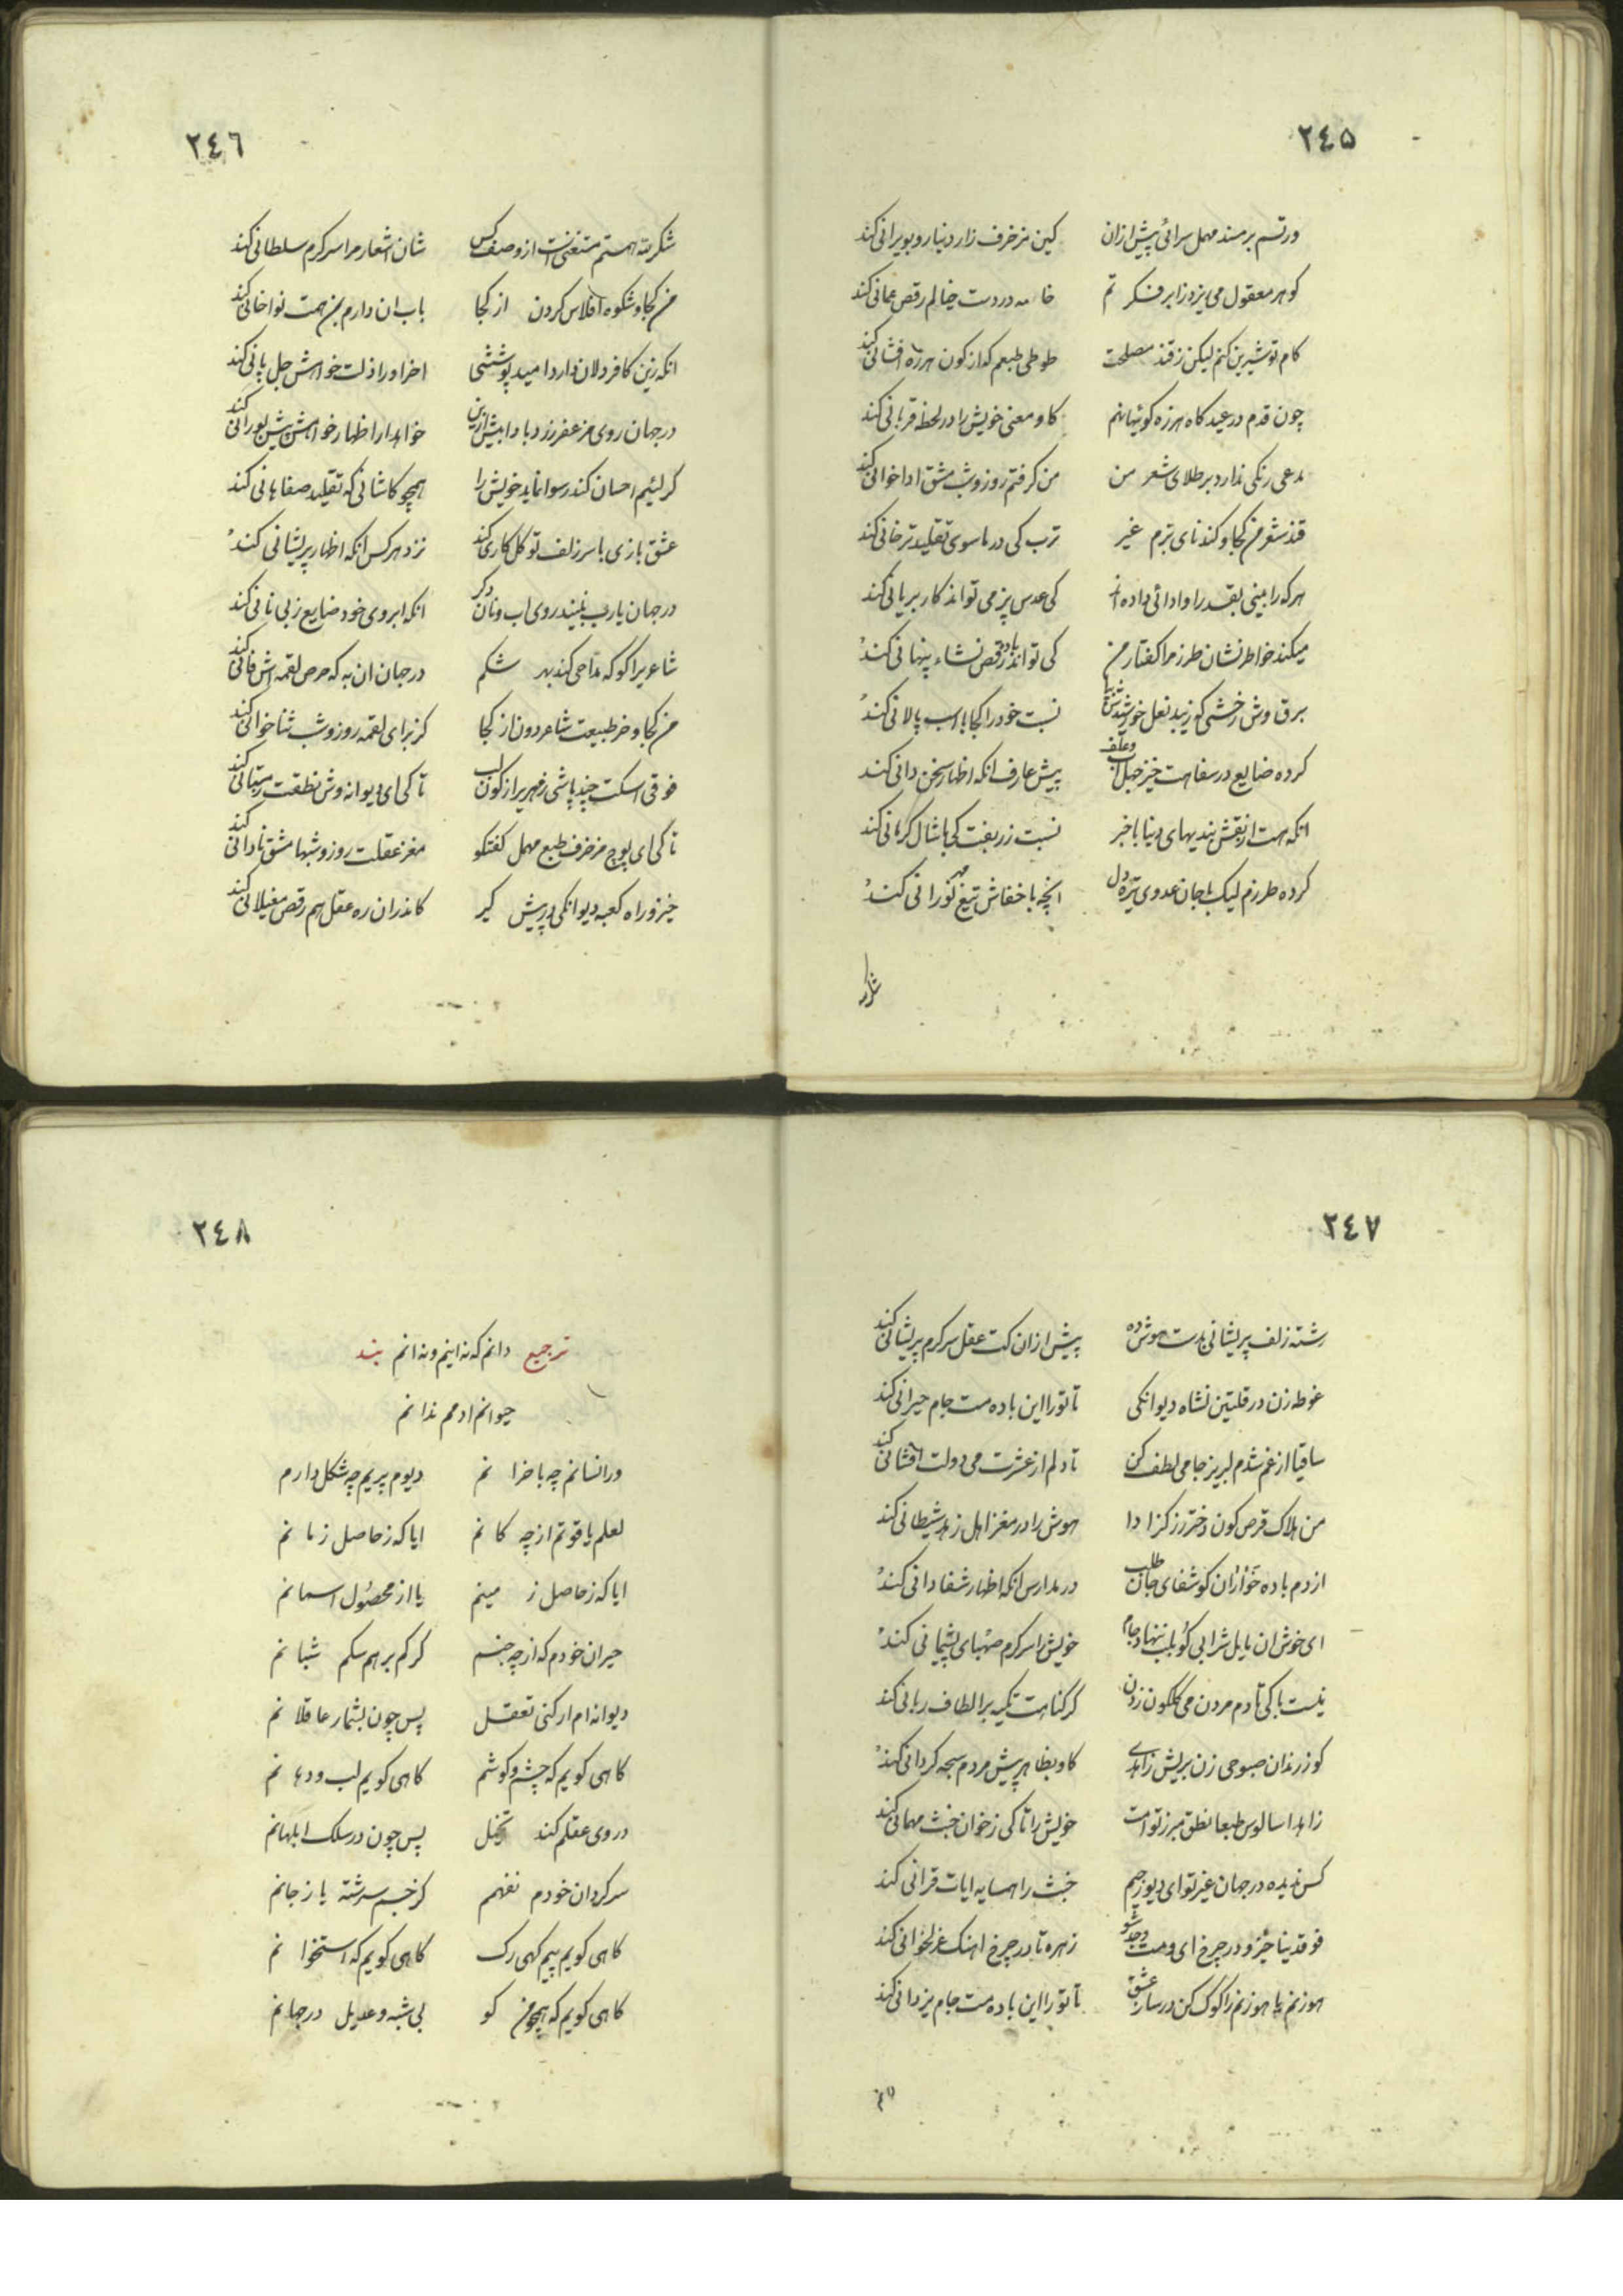 ٢٤٥
ورتسم بر مسند مهمل سرائی پیش ازان کین مزخرف زار دنیا رو بویرانی کند
کوهر معقول می یزد ز ابر فکر تم خامه در دست خیالم رقص عمانی کند
کام تو شیرین کنم لیکن ز قند مصلحت طوطی طبعم که از کون هرزه افشانی کند
چون قدم در عیدکاه هرزه کوئیها نهم کاو معنی خویش را در لحظه قربانی کند
مدعی رنکی ندارد بر طلای شعر من من کرفتم روز و شب مشق اداخوانی کند
قند شعر من کجا و کندنای بزم غیر ترب کی در ماسوی تقلید ترخانی کند
هر که را بینی بقدر او ادائی داده اند کی عدس پز می تواند کار بریانی کند
میکند خاطر نشان طرز مرا کفتار من کی تواند باده رقص نشاء پنهانی کند
برق وش رخشی که زیبد نعل خورشیدش نسبت خود را کجا با اسب پالانی کند
کرده ضایع در سفاهت خیز جهل آب وعلف پیش عارف انکه اظهار سخن دانی کند
انکه هست از نقش بندیهای دنیا با خبر نسبت زربفت کی با شال کرمانی کند
کرده طرزم لیک با جان عدوی تیره دل انچه با خفاش تیغ مهر نورانی کند
شکر لله
٢٤٦
شکر لله همتم مستغنیست از وصف کس شان اشعار مرا سر کرم سلطانی کند
من کجا و شکوه افلاس کردن از کجا باب ان دارم بمن همت نواخانی کند
انکه زین کافر دلان دارد امید پوششی اخر او را ذلت خواهش جل پانی کند
در جهان روی مزعفر زرد بادا بیش ازین خواهد ار اظهار خواهش پیش بورانی کند
کر لئیم احسان کند رسوا نماید خویش را همچو کاشانی که تقلید صفاهانی کند
عشق بازی با سر زلف توکل کاری کند نزد هر کس انکه اظهار پریشانی کند
در جهان یارب نبیند روی اب و نان دکر انکه ابروی خود ضایع ز بی نانی کند
شاعریرا کو که مداحی کند بهر شکم در جهان ان به که حرص لقمه اش فانی کند
من کجا و خر طبیعت شاعر دون از کجا کز برای لقمه روز و شب ثنا خوانی کند
فوقی اسکت چند پاشی زمهریر از کون لب تا کی ای دیوانه وش نطقت زمستانی کند
تا کی ای پوچ مزخرف طبع مهمل کفتکو مغز عقلت روز و شبها مشق نادانی کند
خیز و راه کعبه دیوانکی در پیش کیر کاندران ره عقل هم رقص مغیلانی کند
٢٤٧
رشته زلف پریشانی بدست هوش ده پیش ازان کت عقل سر کرم پریشانی کند
غوطه زن در قلتین نشاه دیوانکی تا تو را این باده مست جام حیرانی کند
ساقیا از غم شدم لبریز جامی لطف کن تا دلم از عشرت می دولت افشانی کند
من هلاک قرص کون دختر رز کز ادا هوش را در مغز اهل زهد شیطانی کند
از دم باده خواران کو شفای جان طلب در مدارس انکه اظهار شفا دانی کند
ای خوش ان یابل شرابی کو بلب ننهاد جام خویش را سر کرم صهبای پشیمانی کند
نیست باکی تا دم مردن می کلکون زدن کر کناهت تکیه بر الطاف ربانی کند
کوز رندان صبوحی زن بریش زاهدی کاو بظاهر پیش مردم سبحه کردانی کند
زاهدا سالوس طبعا نطق مبرز توامت خویش را تا کی ز خوان خبث مهمانی کند
کس ندیده در جهان غیر تو ای دیو رجیم خبث را همسایه ایات قرانی کند
فوقدینا خیز و در چرخ ای و مست وجد شو زهره تا در چرخ اهنک غزلخوانی کند
هوزنم یاهوزنم را کوک کن در ساز عشق تا تو را این باده مست جام یزدانی کند
٢٤٨
ترجیع دانم که نه اینم و نه انم بند
حیوانم ادمم ندانم
ور انسانم چه با خدا نم دیوم پریم چه شکل دارم
لعلم یاقوتم از چه کا نم ایا که ز حاصل زما نم
ایا که ز حاصل ز مینم یا از محصول اسمانم
حیران خودم که از چه جنسم کرکم برهم سکم شبا نم
دیوانه ام ار کنی تعقل پس چون بشمار عاقلا نم
کاهی کویم که چشم و کوشم کاهی کویم لب و دها نم
در وی عقلم کند تخیل پس چون در سلک ابلهانم
سرکردان خودم نفهمم کز جسم سرشته یا ز جانم
کاهی کویم پیم کهی رک کاهی کویم که استخوا نم
کاهی کویم که همچو من کو بی شبه و عدیل در جها نم